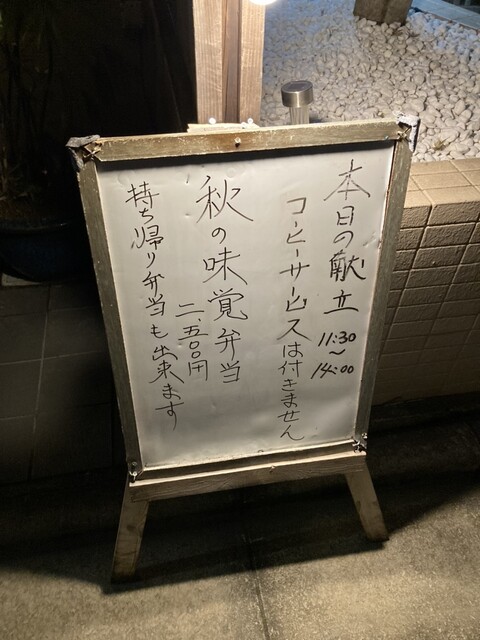 本日の献立 11:30〜14:00
コーヒーサービスは付きません
秋の味覚弁当
二、五〇〇円
持ち帰り弁当も出来ます